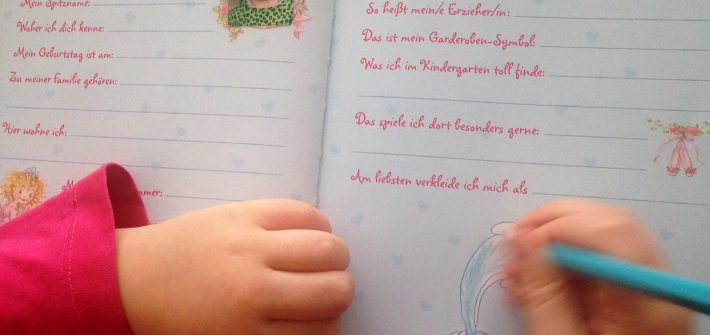 Mein Spitzname:
Woher ich dich kenne:
Mein Geburtstag ist am:
Zu meiner Familie gehören:
Hier wohne ich:
So heißt mein/e Erzieher/in:
Das ist mein Garderoben-Symbol:
Was ich im Kindergarten toll finde:
Das spiele ich dort besonders gerne:
Am liebsten verkleide ich mich als